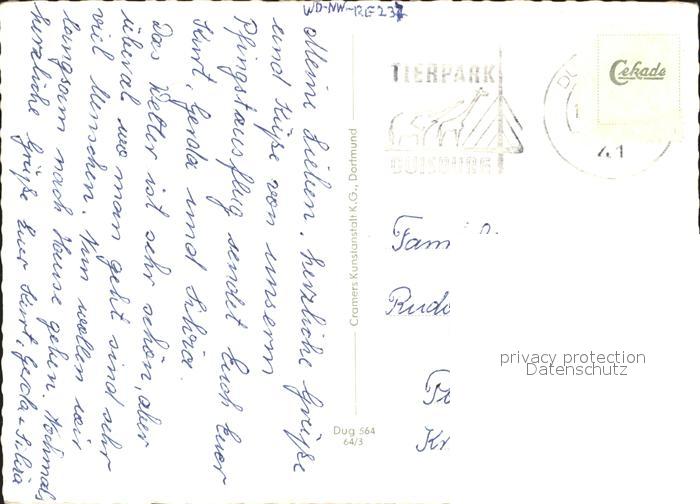 WD-NW-RE237
Meine Lieben, herzliche Grüße
und Küße von unserm
Pfingstausflug sendet Euch Euer
Kurt, Gerda und Silvia.
Das Wetter ist sehr schön, aber
überal wo man geht sind sehr
viel Menschen. Nun wollen wir
langsam nach Hause gehen. Nochmals
herzliche Grüße Euer Kurt, Gerda + Silvia
Cramers Kunstanstalt K.G., Dortmund
Dug 564
64/3
TIERPARK
DUISBURG
41
Cekade
Fam
Rudo
Kr
privacy protection
Datenschutz